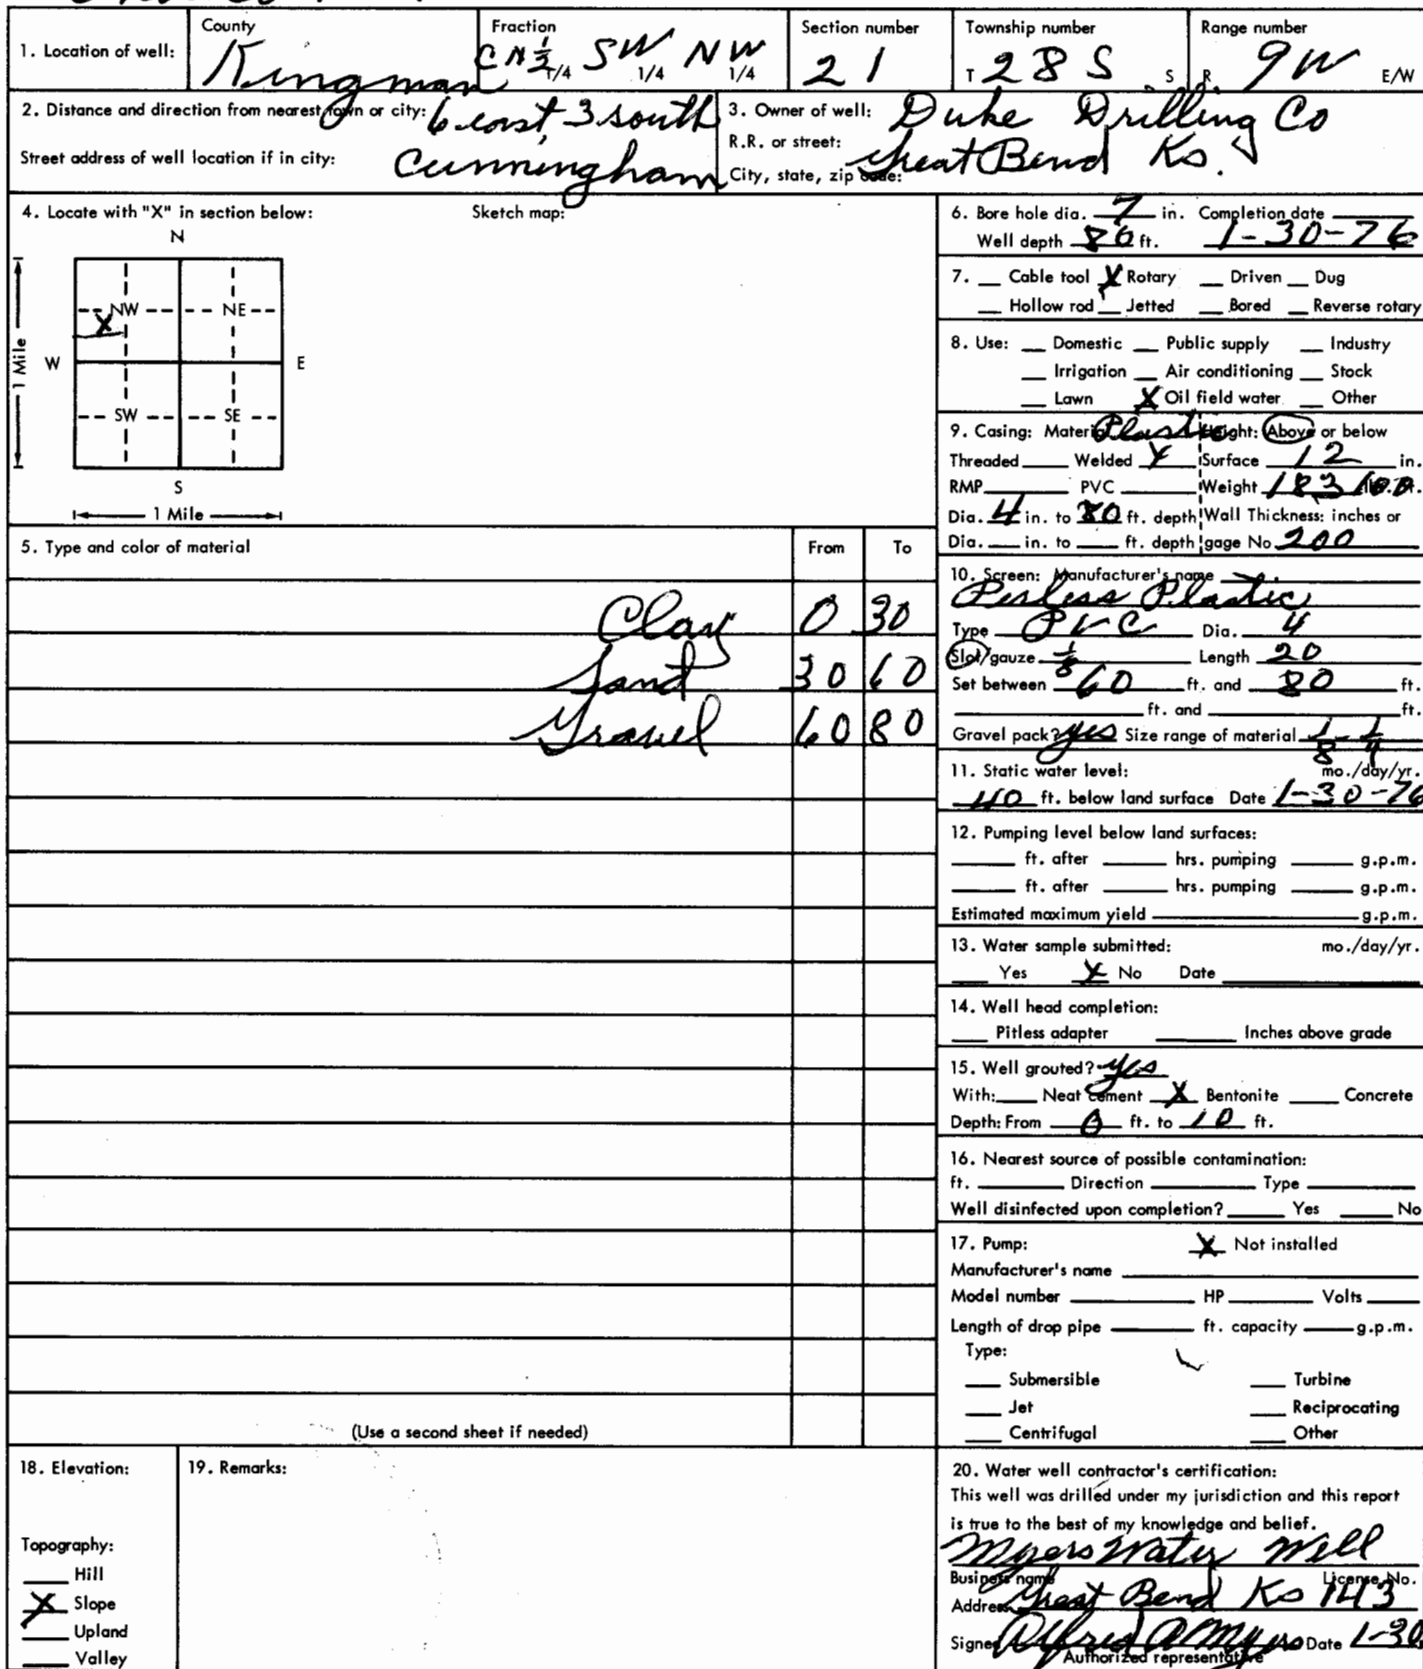 1. Location of well:
County
Kingman
Fraction
C N 1/2 1/4 SW 1/4 NW 1/4
Section number
21
Township number
T 28 S S
Range number
R 9W E/W
2. Distance and direction from nearest town or city: 6 east 3 south
Street address of well location if in city: Cunningham
3. Owner of well: Duke Drilling Co
R.R. or street:
City, state, zip code: Great Bend Ks.
4. Locate with "X" in section below:
Sketch map:
N
NW NE
X
W E
1 Mile
SW SE
S
1 Mile
5. Type and color of material From To
Clay 0 30
Sand 30 60
Gravel 60 80
(Use a second sheet if needed)
6. Bore hole dia. 7 in. Completion date
Well depth 80 ft. 1-30-76
7. Cable tool X Rotary Driven Dug
Hollow rod Jetted Bored Reverse rotary
8. Use: Domestic Public supply Industry
Irrigation Air conditioning Stock
Lawn X Oil field water Other
9. Casing: Material Plastic Height: Above or below
Threaded Welded X Surface 12 in.
RMP PVC Weight 183
Dia. 4 in. to 80 ft. depth Wall Thickness: inches or
Dia. in. to ft. depth gage No 200
10. Screen: Manufacturer's name
Perless Plastic
Type PVC Dia. 4
Slot/gauze 1/8 Length 20
Set between 60 ft. and 80 ft.
ft. and ft.
Gravel pack? yes Size range of material 1/8 - 1/4
11. Static water level: mo./day/yr.
40 ft. below land surface Date 1-30-76
12. Pumping level below land surfaces:
ft. after hrs. pumping g.p.m.
ft. after hrs. pumping g.p.m.
Estimated maximum yield g.p.m.
13. Water sample submitted: mo./day/yr.
Yes X No Date
14. Well head completion:
Pitless adapter Inches above grade
15. Well grouted? yes
With: Neat cement X Bentonite Concrete
Depth: From 0 ft. to 10 ft.
16. Nearest source of possible contamination:
ft. Direction Type
Well disinfected upon completion? Yes No
17. Pump: X Not installed
Manufacturer's name
Model number HP Volts
Length of drop pipe ft. capacity g.p.m.
Type:
Submersible Turbine
Jet Reciprocating
Centrifugal Other
18. Elevation:
Topography:
Hill
X Slope
Upland
Valley
19. Remarks:
20. Water well contractor's certification:
This well was drilled under my jurisdiction and this report
is true to the best of my knowledge and belief.
Myers Water Well
Business name License No.
Address Great Bend Ks 143
Signed Alfred A Myers Date 1-30
Authorized representative